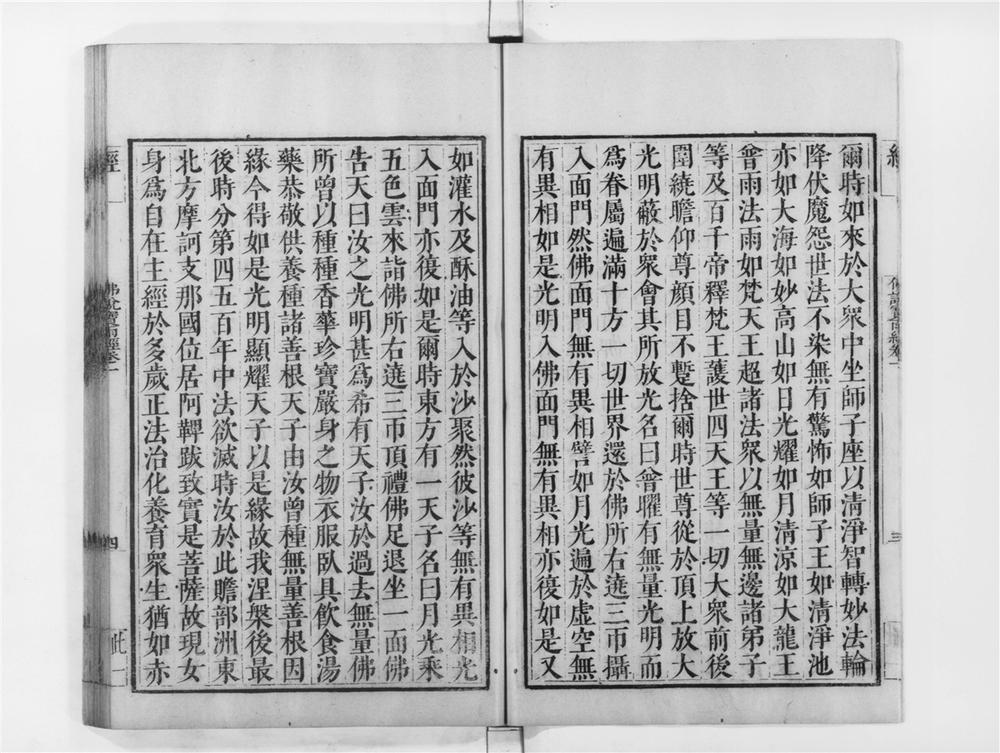 爾時如來於大眾中坐師子座以淸淨智轉妙法輪
降伏魔怨世法不染無有驚怖如師子王如淸淨池
亦如大海如妙高山如日光耀如月淸涼如大龍王
曾雨法雨如梵天王超諸法眾以無量無邊諸弟子
等及百千帝釋梵王護世四天王等一切大眾前後
圍繞瞻仰尊顏目不蹔捨爾時世尊從於頂上放大
光明蔽於眾會其所放光名曰曾曜有無量光明而
爲眷屬遍滿十方一切世界還於佛所右遶三帀攝
入面門然佛面門無有異相譬如月光遍於虛空無
有異相如是光明入佛面門無有異相亦復如是又
三
如灌水及酥油等入於沙聚然彼沙等無有異相光
入面門亦復如是爾時東方有一天子名曰月光乘
五色雲來詣佛所右遶三帀頂禮佛足退坐一面佛
告天曰汝之光明甚爲希有天子汝於過去無量佛
所曾以種種香華珍寶嚴身之物衣服臥具飮食湯
藥恭敬供養種諸善根天子由汝曾種無量善根因
緣今得如是光明顯耀天子以是緣故我涅槃後最
後時分第四五百年中法欲滅時汝於此贍部洲東
北方摩訶支那國位居阿鞞跋致實是菩薩故現女
身爲自在主經於多歲正法治化養育眾生猶如赤
經
佛說寶雨經卷一
四